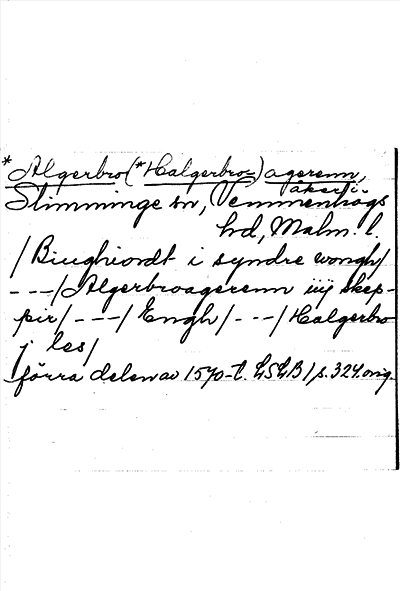 *Algerbro(*Halgerbro-) agerenn,
åker i
Slimminge sn, Vemmenhögs
hd, Malm. l.
/Biughiordt i syndre wongh/
---/Algerbroagerenn iiij skep-
pir/---/Engh/---/Halgerbro
j les/
förra delen av 1570-t. LSLB 1/s.324.orig.